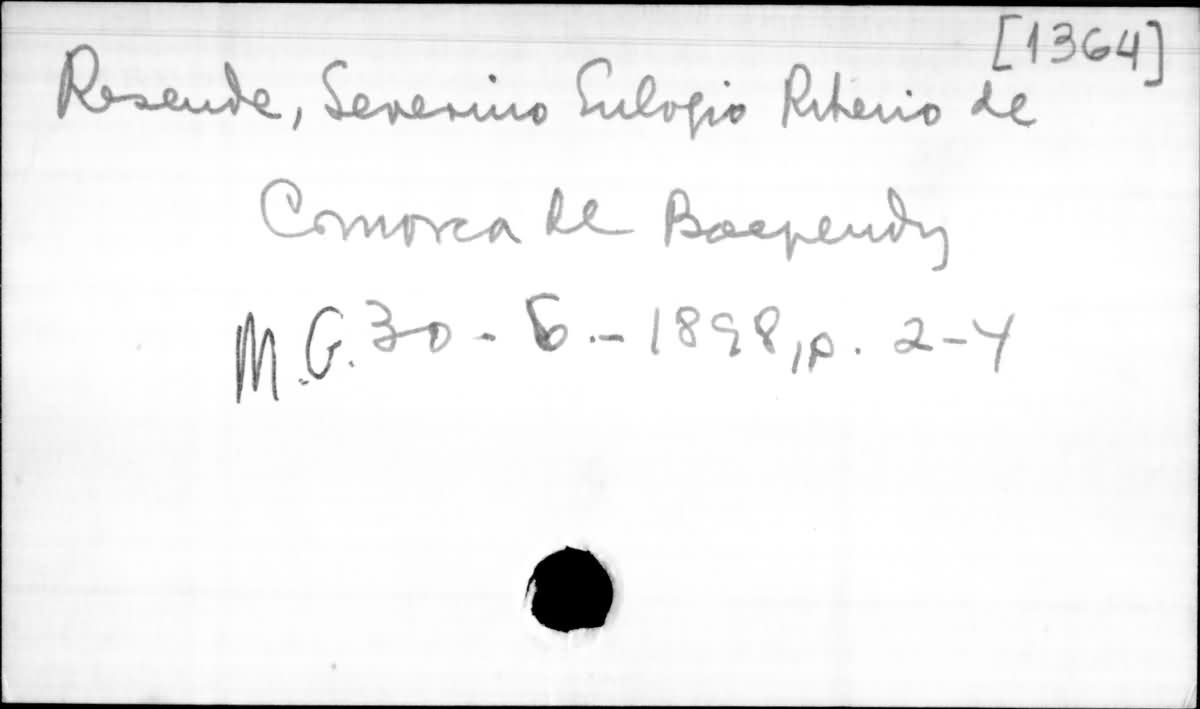 [1364]
Resende, Severino Eulogio Ribeiro de
Comarca de Baependy
M.G. 30-6-1898, p. 2-4